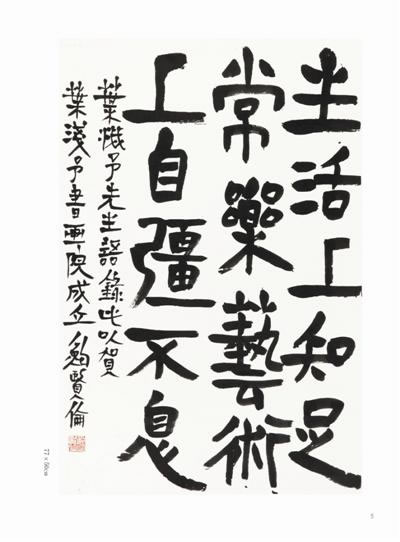 生活上知足
常樂藝術
上自彊不息
葉淺予先生語錄此以賀
葉淺予書畫院成立 鮑賢倫
77×56cm